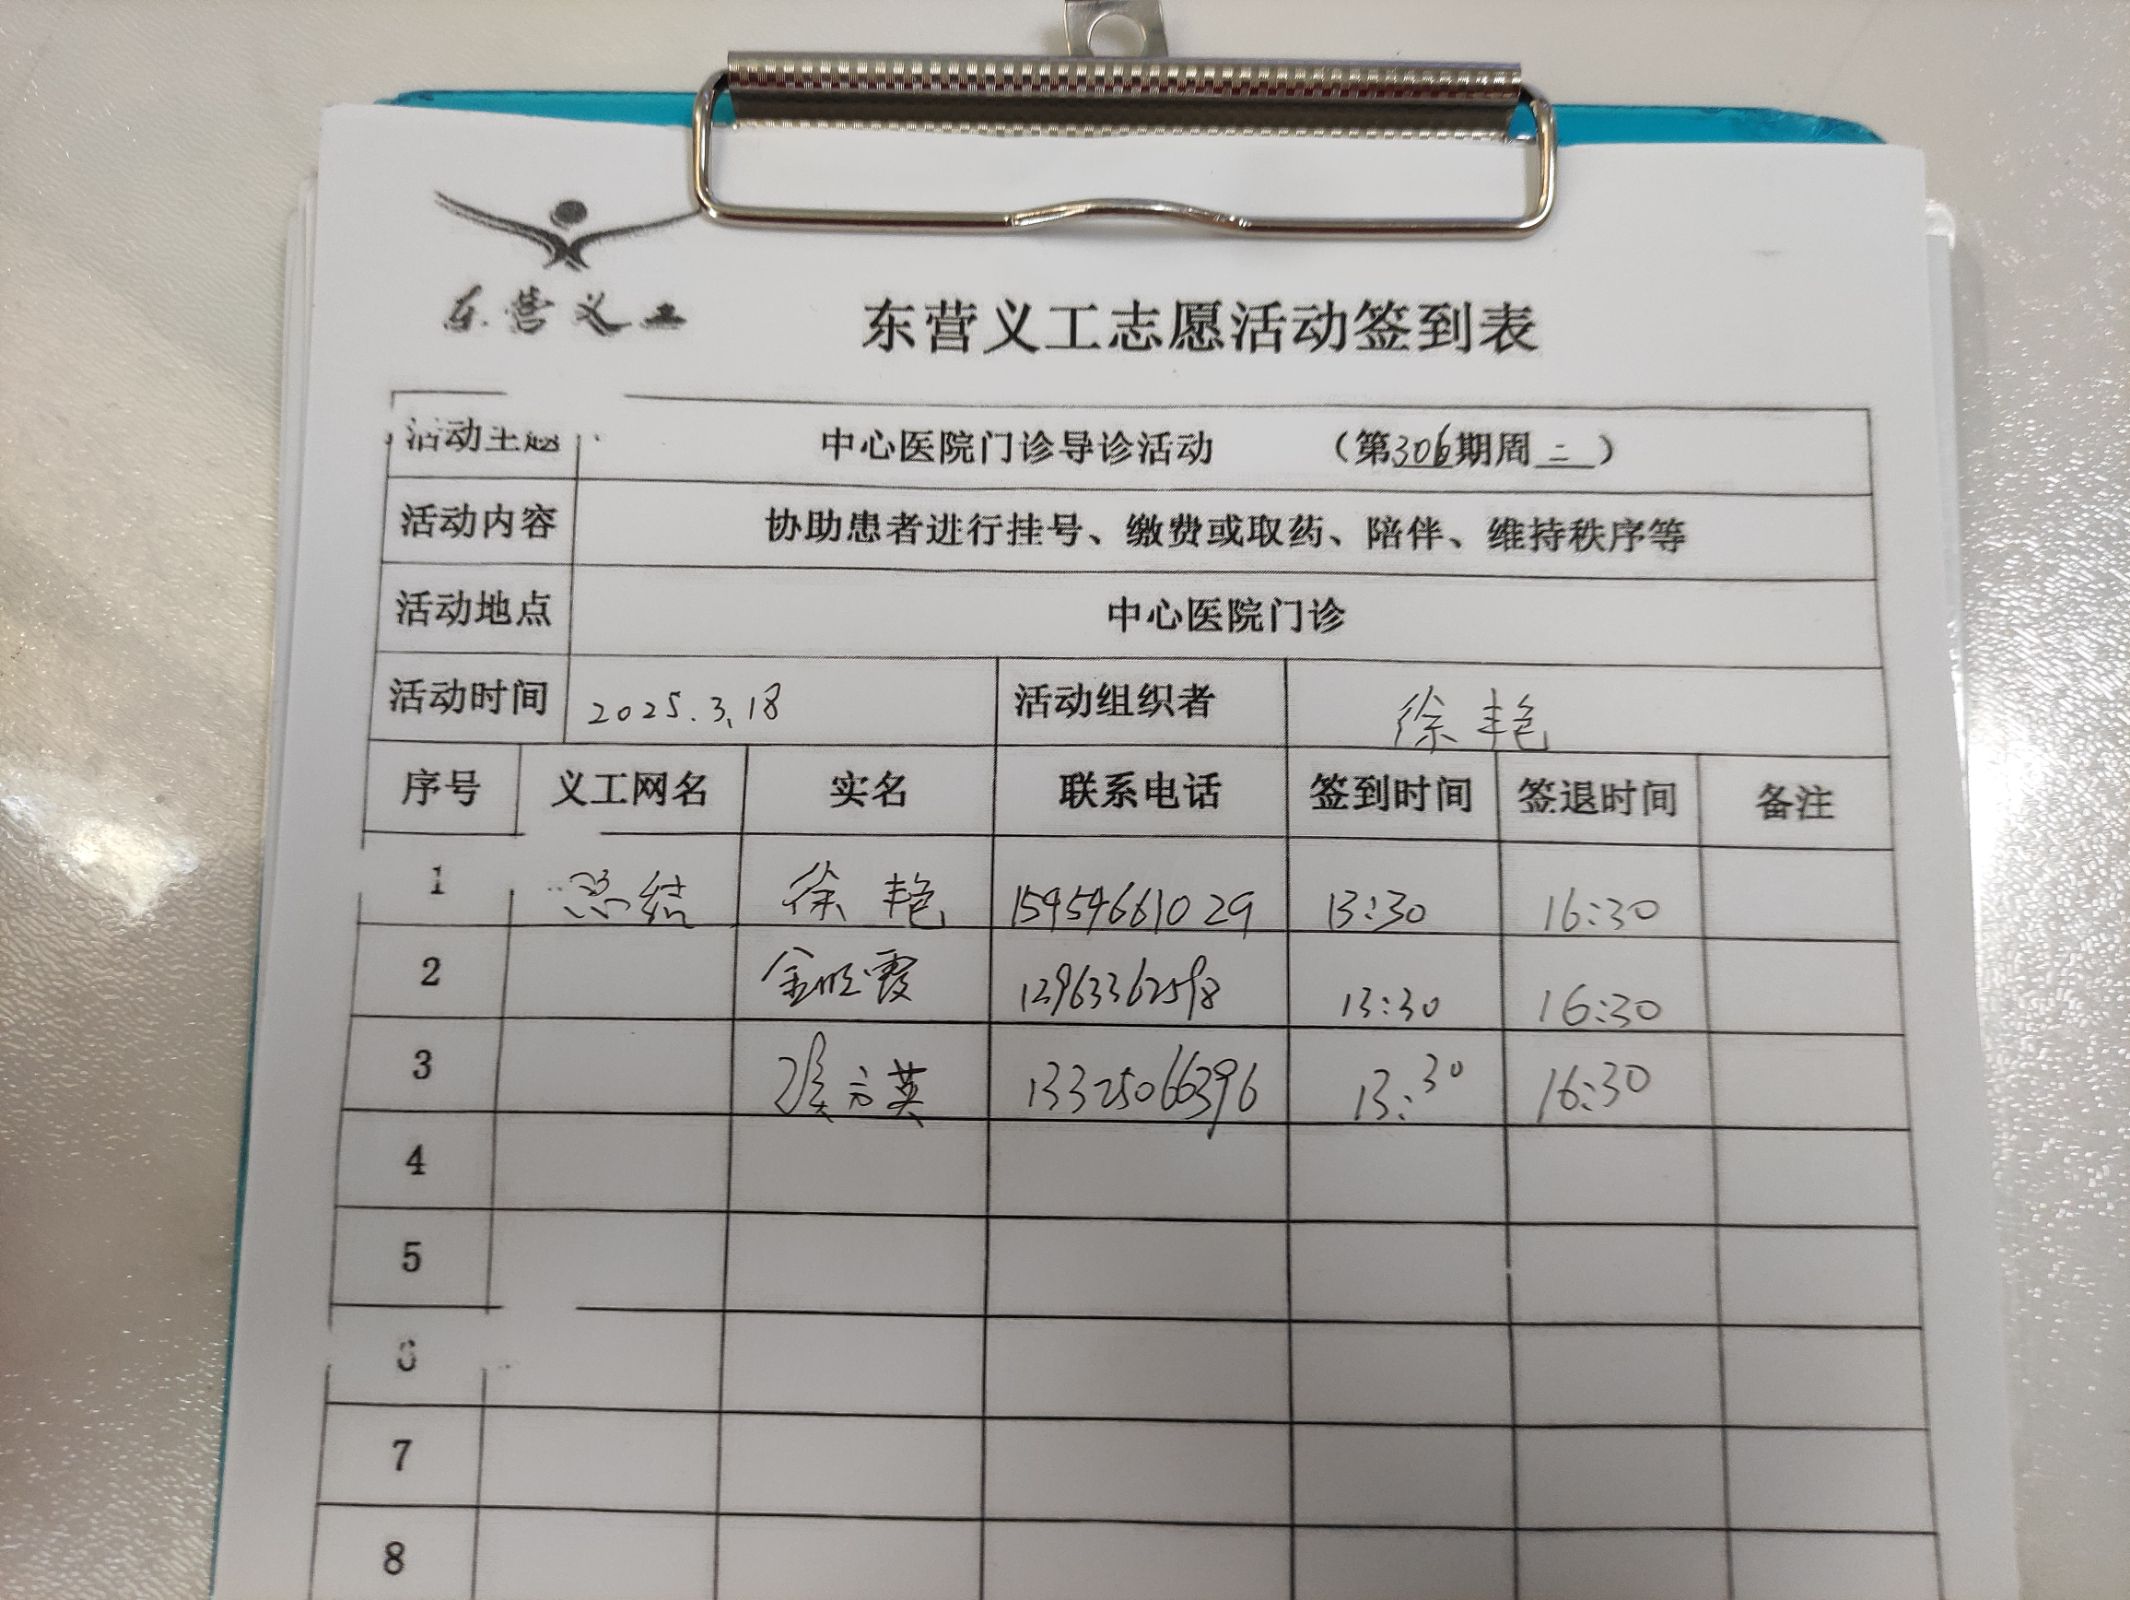 东营义工
东营义工志愿活动签到表
活动主题 中心医院门诊导诊活动 (第306期周二)
活动内容 协助患者进行挂号、缴费或取药、陪伴、维持秩序等
活动地点 中心医院门诊
活动时间 2025.3.18 活动组织者 徐艳
序号 义工网名 实名 联系电话 签到时间 签退时间 备注
1 徐艳 15954661029 13:30 16:30
2 13:30 16:30
3 13325066396 13:30 16:30
4
5
6
7
8